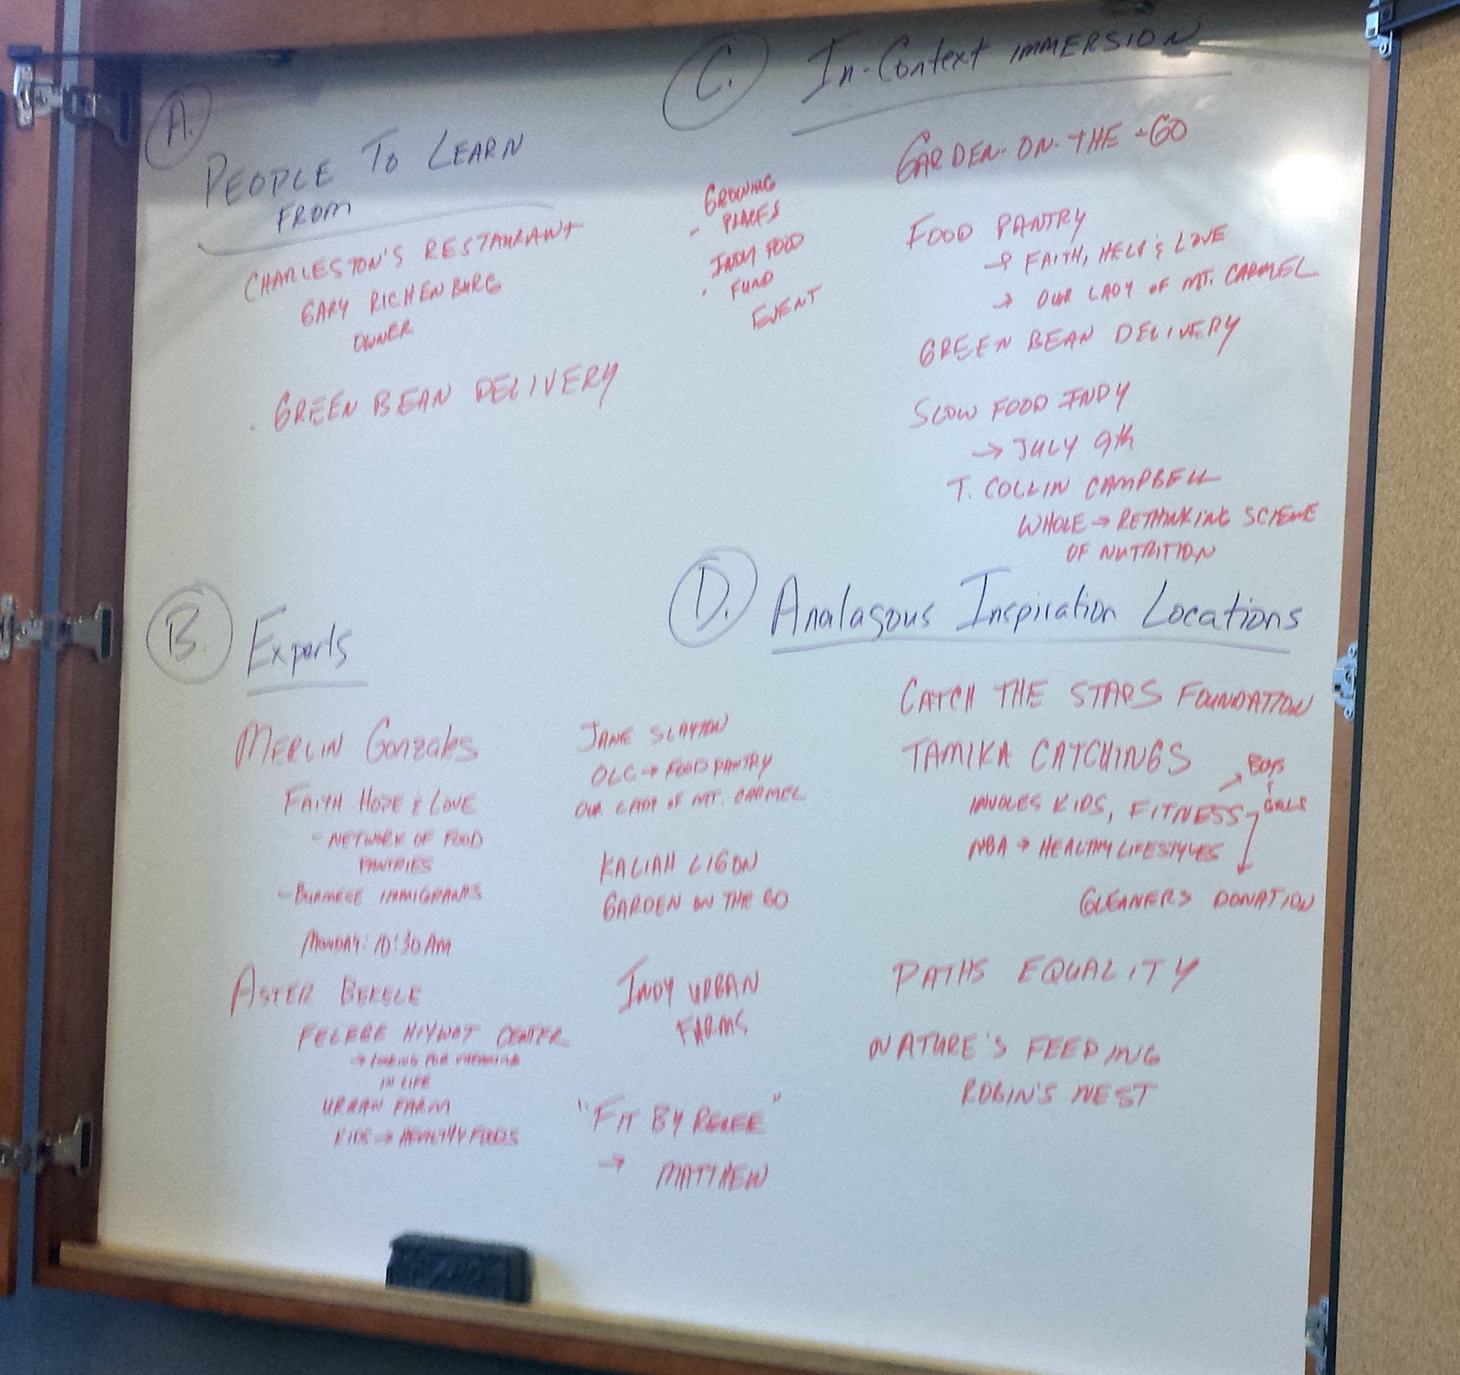 A.
PEOPLE TO LEARN
FROM
CHARLESTON'S RESTAURANT
GARY RICHENBURG
OWNER
. GREEN BEAN DELIVERY
B.
Experts
MERLIN Gonzales
FAITH HOPE & LOVE
- NETWORK OF FOOD
PANTRIES
- BURMESE IMMIGRANTS
MONDAY: 10:30 AM
ASTER BEKELE
FELEGE HIYWOT CENTER
→ LOOKING FOR MEANING
IN LIFE
URBAN FARM
KIDS → HEALTHY FOODS
JANE SLAYTON
OLC → FOOD PANTRY
OUR LADY OF MT. CARMEL
KALIAH LIGON
GARDEN ON THE GO
INDY URBAN
FARMS
"FIT BY RENEE"
→ MATTHEW
C.
In-Context IMMERSION
GROWING
PLACES
- INDY FOOD
. FUND
EVENT
GARDEN-ON-THE-GO
FOOD PANTRY
→ FAITH, HELP & LOVE
→ OUR LADY OF MT. CARMEL
GREEN BEAN DELIVERY
SLOW FOOD INDY
→ JULY 9th
T. COLLIN CAMPBELL
WHOLE → RETHINKING SCIENCE
OF NUTRITION
D.
Analagous Inspiration Locations
CATCH THE STARS FOUNDATION
TAMIKA CATCHINGS
→ BOYS
&
INVOLES KIDS, FITNESS GIRLS
NBA → HEALTHY LIFESTYLES
GLEANERS DONATION
PATHS EQUALITY
NATURE'S FEEDING
ROBIN'S NEST